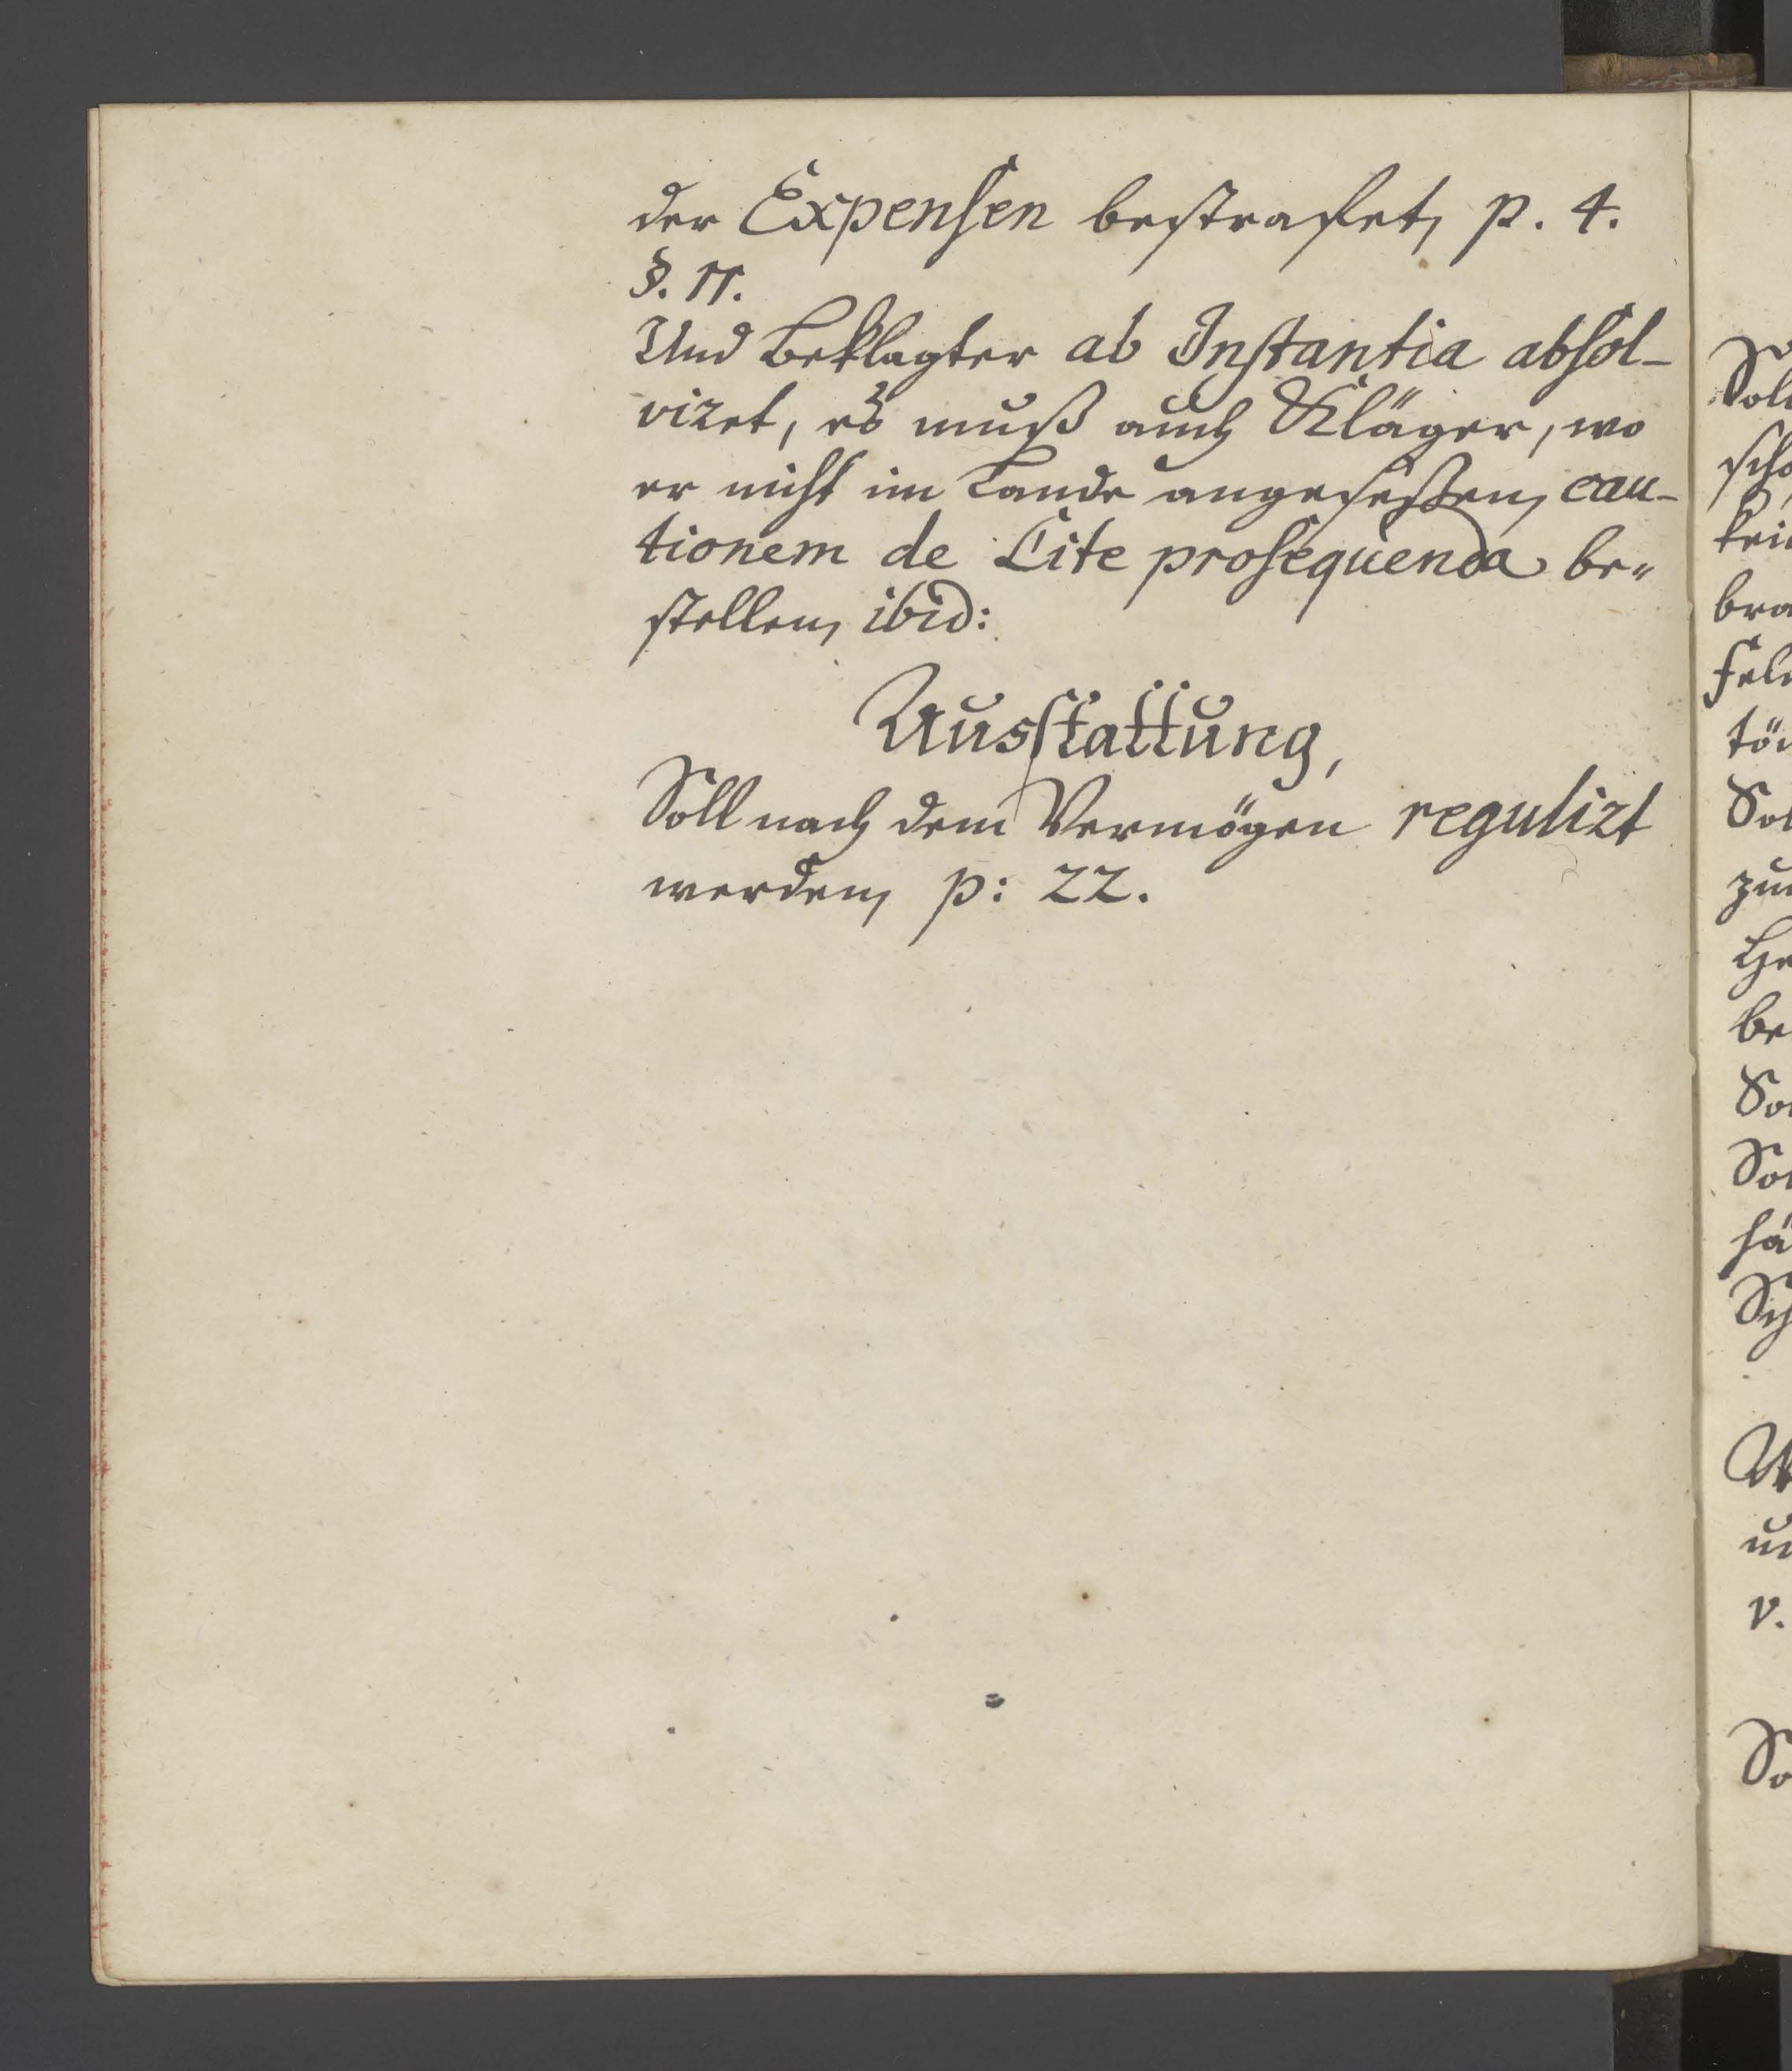 der Expensen bestrafet, p. 4.
§. 11.
Und Beklagter ab Instantia absol-
viret, es muß auch Kläger, wo
er nicht im Lande angeseßen, cau-
tionem de Lite prosequenda be-
stellen, ibid:
Ausstattung,
Soll nach dem Vermögen regulirt
werden, p: 22.